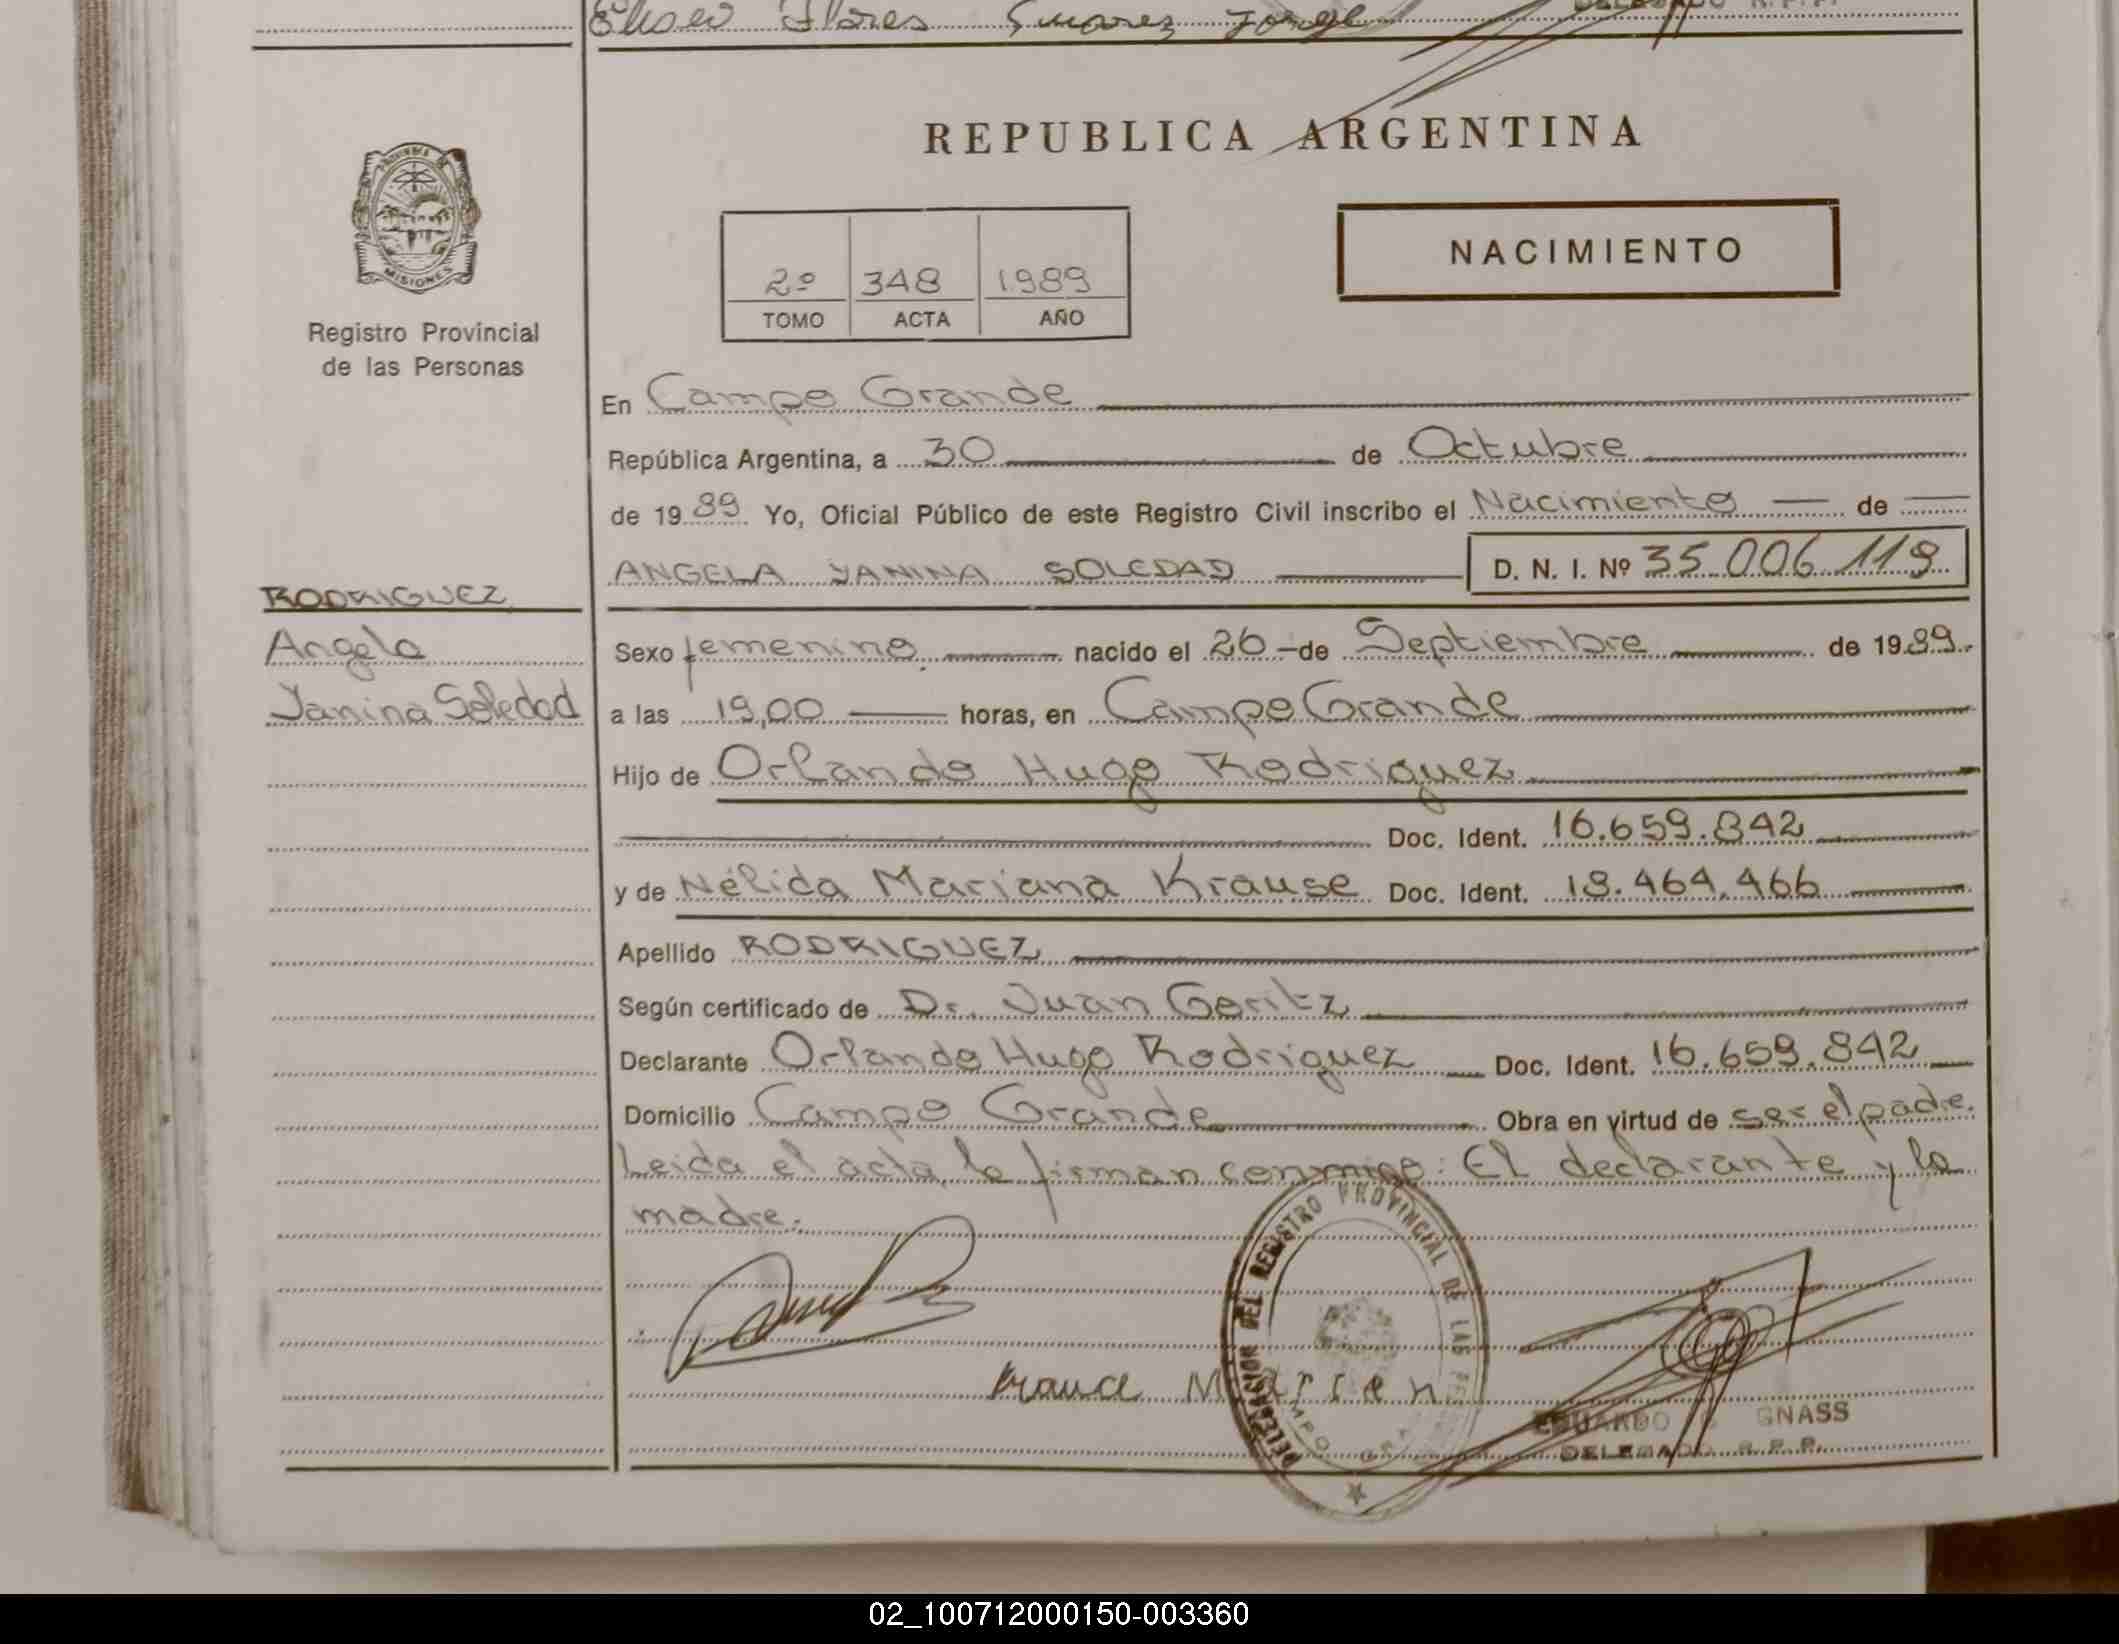 Eliseo Flores Suarez Jorge
DELEGADO R.P.P.
REPUBLICA ARGENTINA
MISIONES
Registro Provincial
de las Personas
NACIMIENTO
2º 348 1989
TOMO ACTA AÑO
En Campo Grande
República Argentina, a 30 de Octubre
de 1989 Yo, Oficial Público de este Registro Civil inscribo el Nacimiento de
ANGELA YANINA SOLEDAD D. N. I. Nº 35.006.119
RODRIGUEZ
Angela
Yanina Soledad
Sexo femenino. nacido el 26 de Septiembre de 1989.
a las 19,00 horas, en Campo Grande
Hijo de Orlando Hugo Rodriguez
Doc. Ident. 16.659.842
y de Nélida Mariana Krause Doc. Ident. 18.464.466
Apellido RODRIGUEZ
Según certificado de Dr. Juan Goritz
Declarante Orlando Hugo Rodriguez Doc. Ident. 16.659.842
Domicilio Campo Grande Obra en virtud de ser el padre.
Leida el acta, la firman conmigo: El declarante y la
madre.
DELEGACION DEL REGISTRO PROVINCIAL DE LAS
EDUARDO GNASS
DELEGADO R.P.P.
02_100712000150-003360